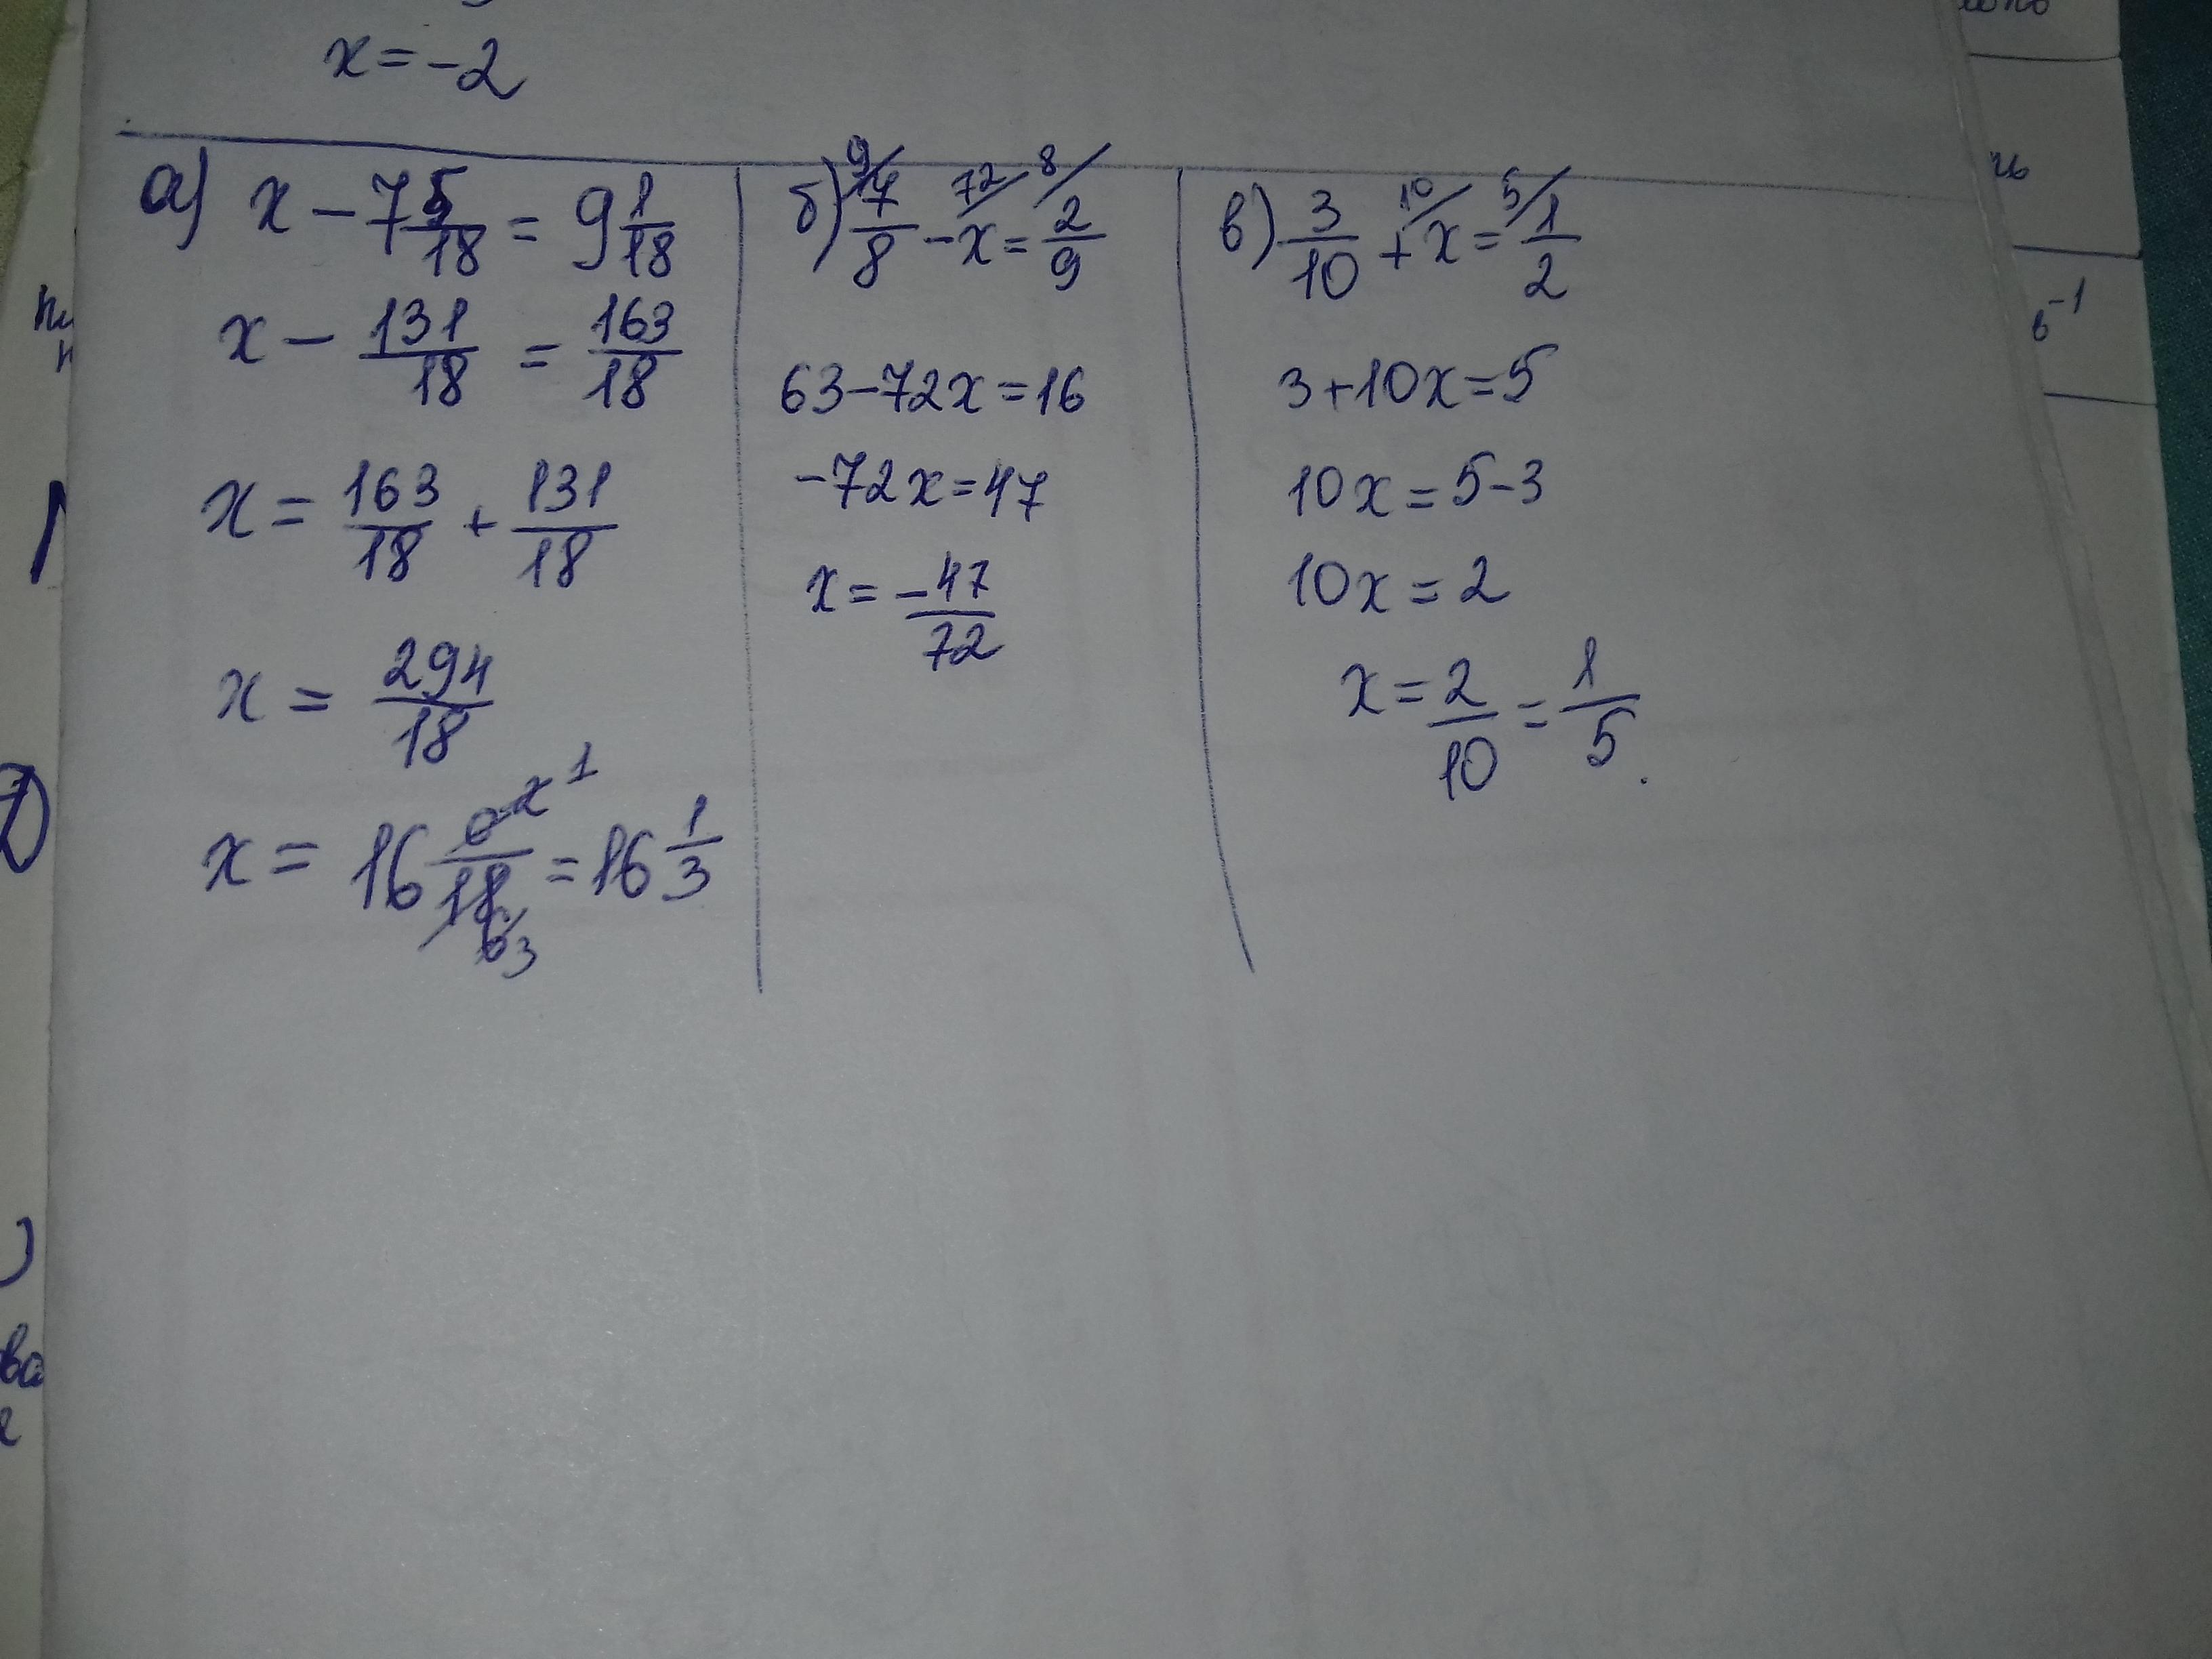 x = -2
а) x - 7 5/18 = 9 1/18
x - 131/18 = 163/18
x = 163/18 + 131/18
x = 294/18
x = 16 /18 = 16 1/3
б) 7/8 - x = 2/9
9/ 72/ 8/
63 - 72x = 16
-72x = 47
x = -47/72
в) 3/10 + x = 1/2
10/ 5/
3 + 10x = 5
10x = 5 - 3
10x = 2
x = 2/10 = 1/5.
в⁻¹